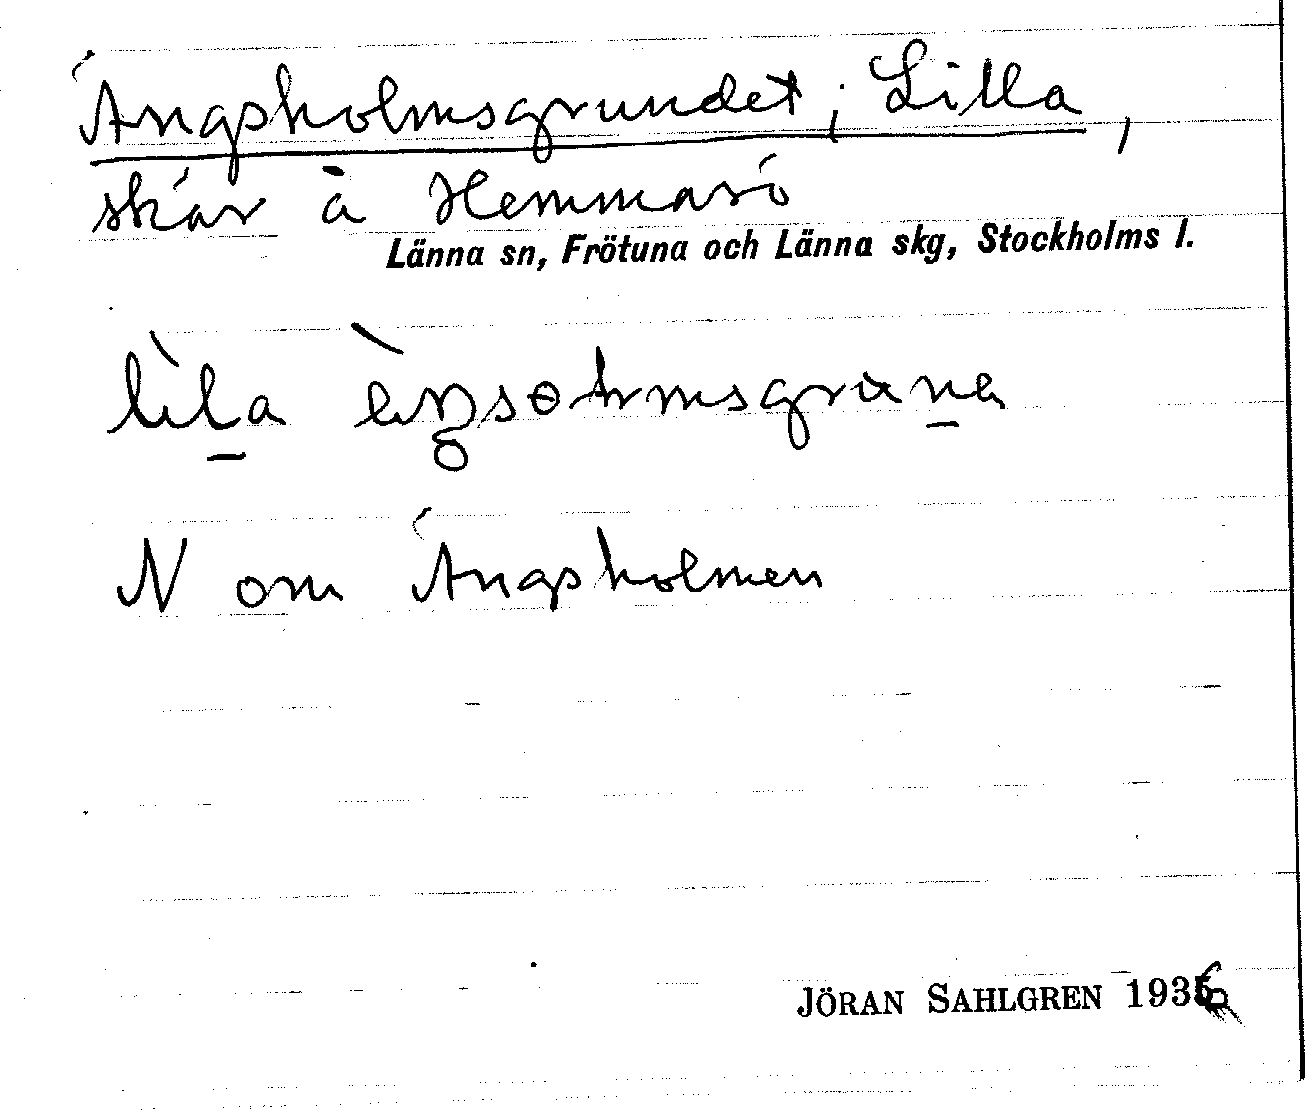 Ängsholmsgrundet, Lilla,
skär å Hemmarö
Länna sn, Frötuna och Länna skg, Stockholms l.
lìla
N om Ängsholmen
JÖRAN SAHLGREN 1936